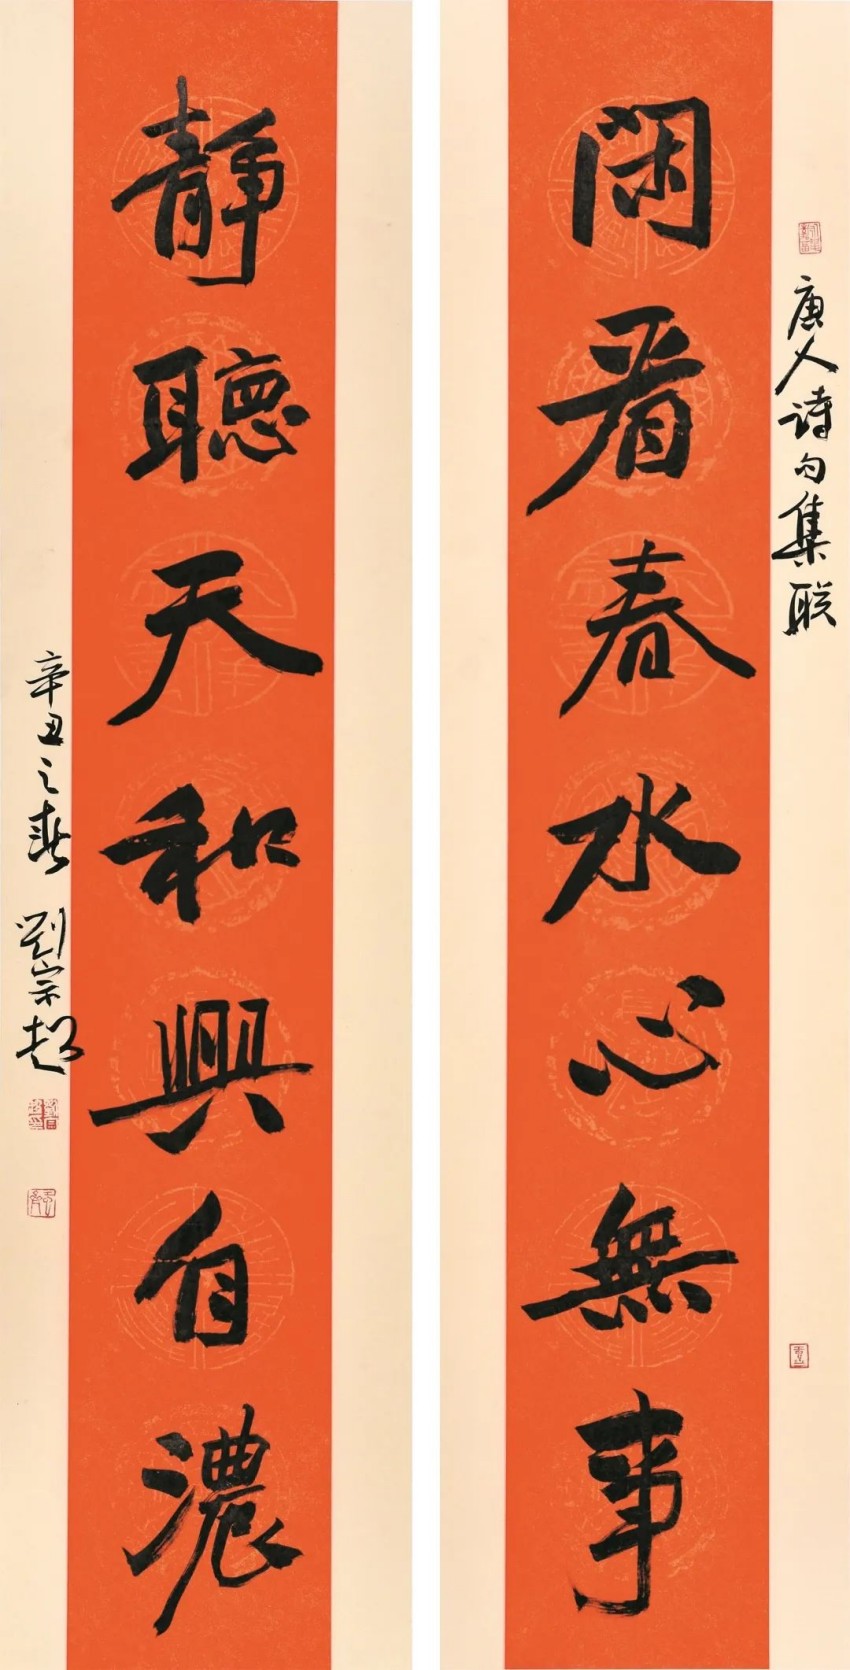 唐人诗句集联
閑看春水心無事
静聽天和興自濃
辛丑之春 劉宗超